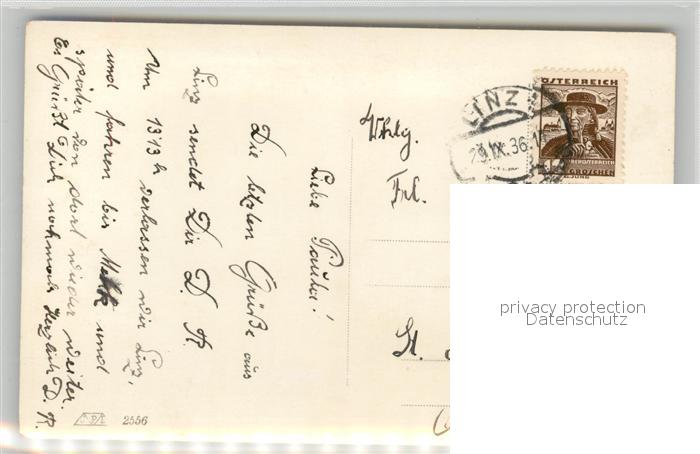 Liebe Paula!
Die letzten Grüße aus
Linz sendet Dir D. R.
Um 13 13h verlassen wir Linz,
und fahren bis Melk und
später von dort wieder weiter.
Es Grüßt Dich nochmals Herzlich D. R.
Whlg.
Frl.
St.
LINZ
29.IX.36.
ÖSTERREICH
OBERÖSTERREICH
GROSCHEN
2556
privacy protection
Datenschutz